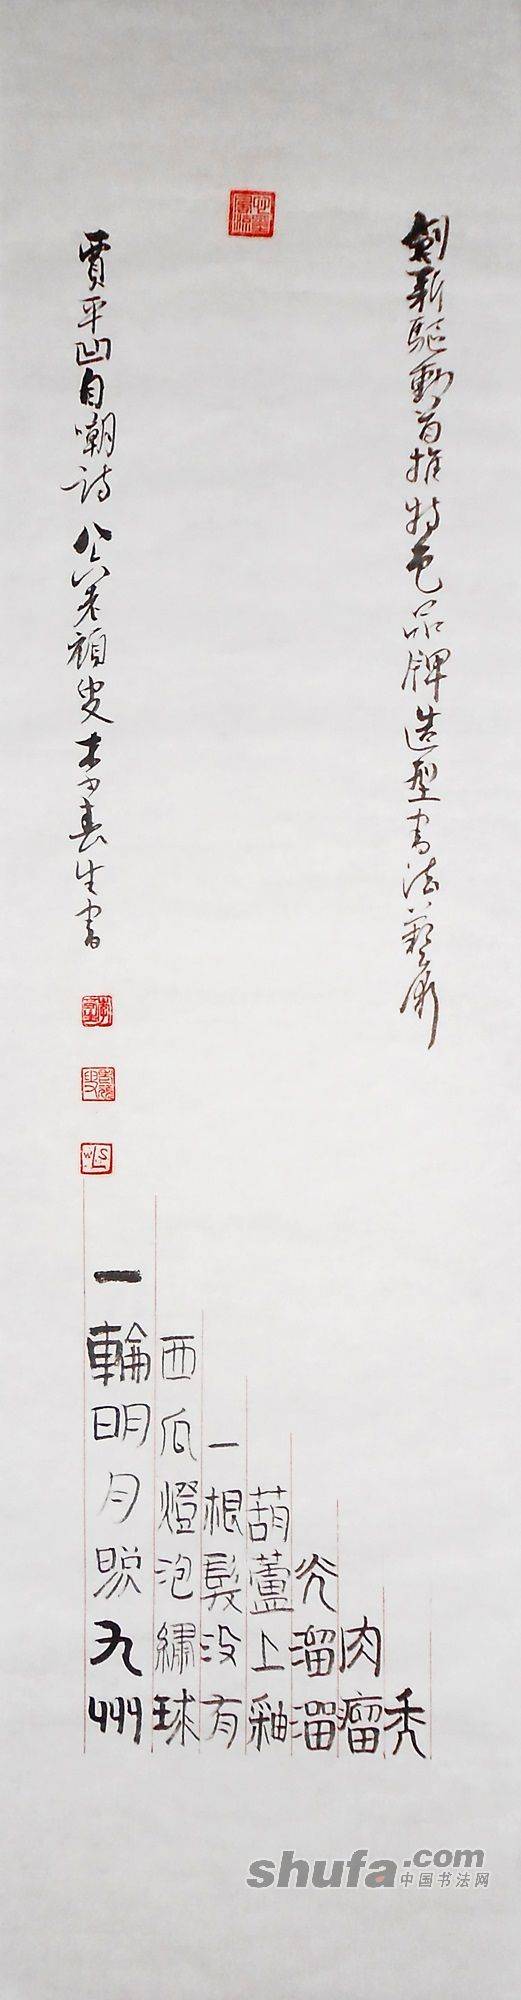 創新驅動首推特色品牌造型書法藝術
秃
肉瘤
光溜溜
葫蘆上釉
一根髮没有
西瓜燈泡繡球
一輪明月照九州
賈平凹自嘲詩 老頑叟李春生書
shufa.com
中国书法网